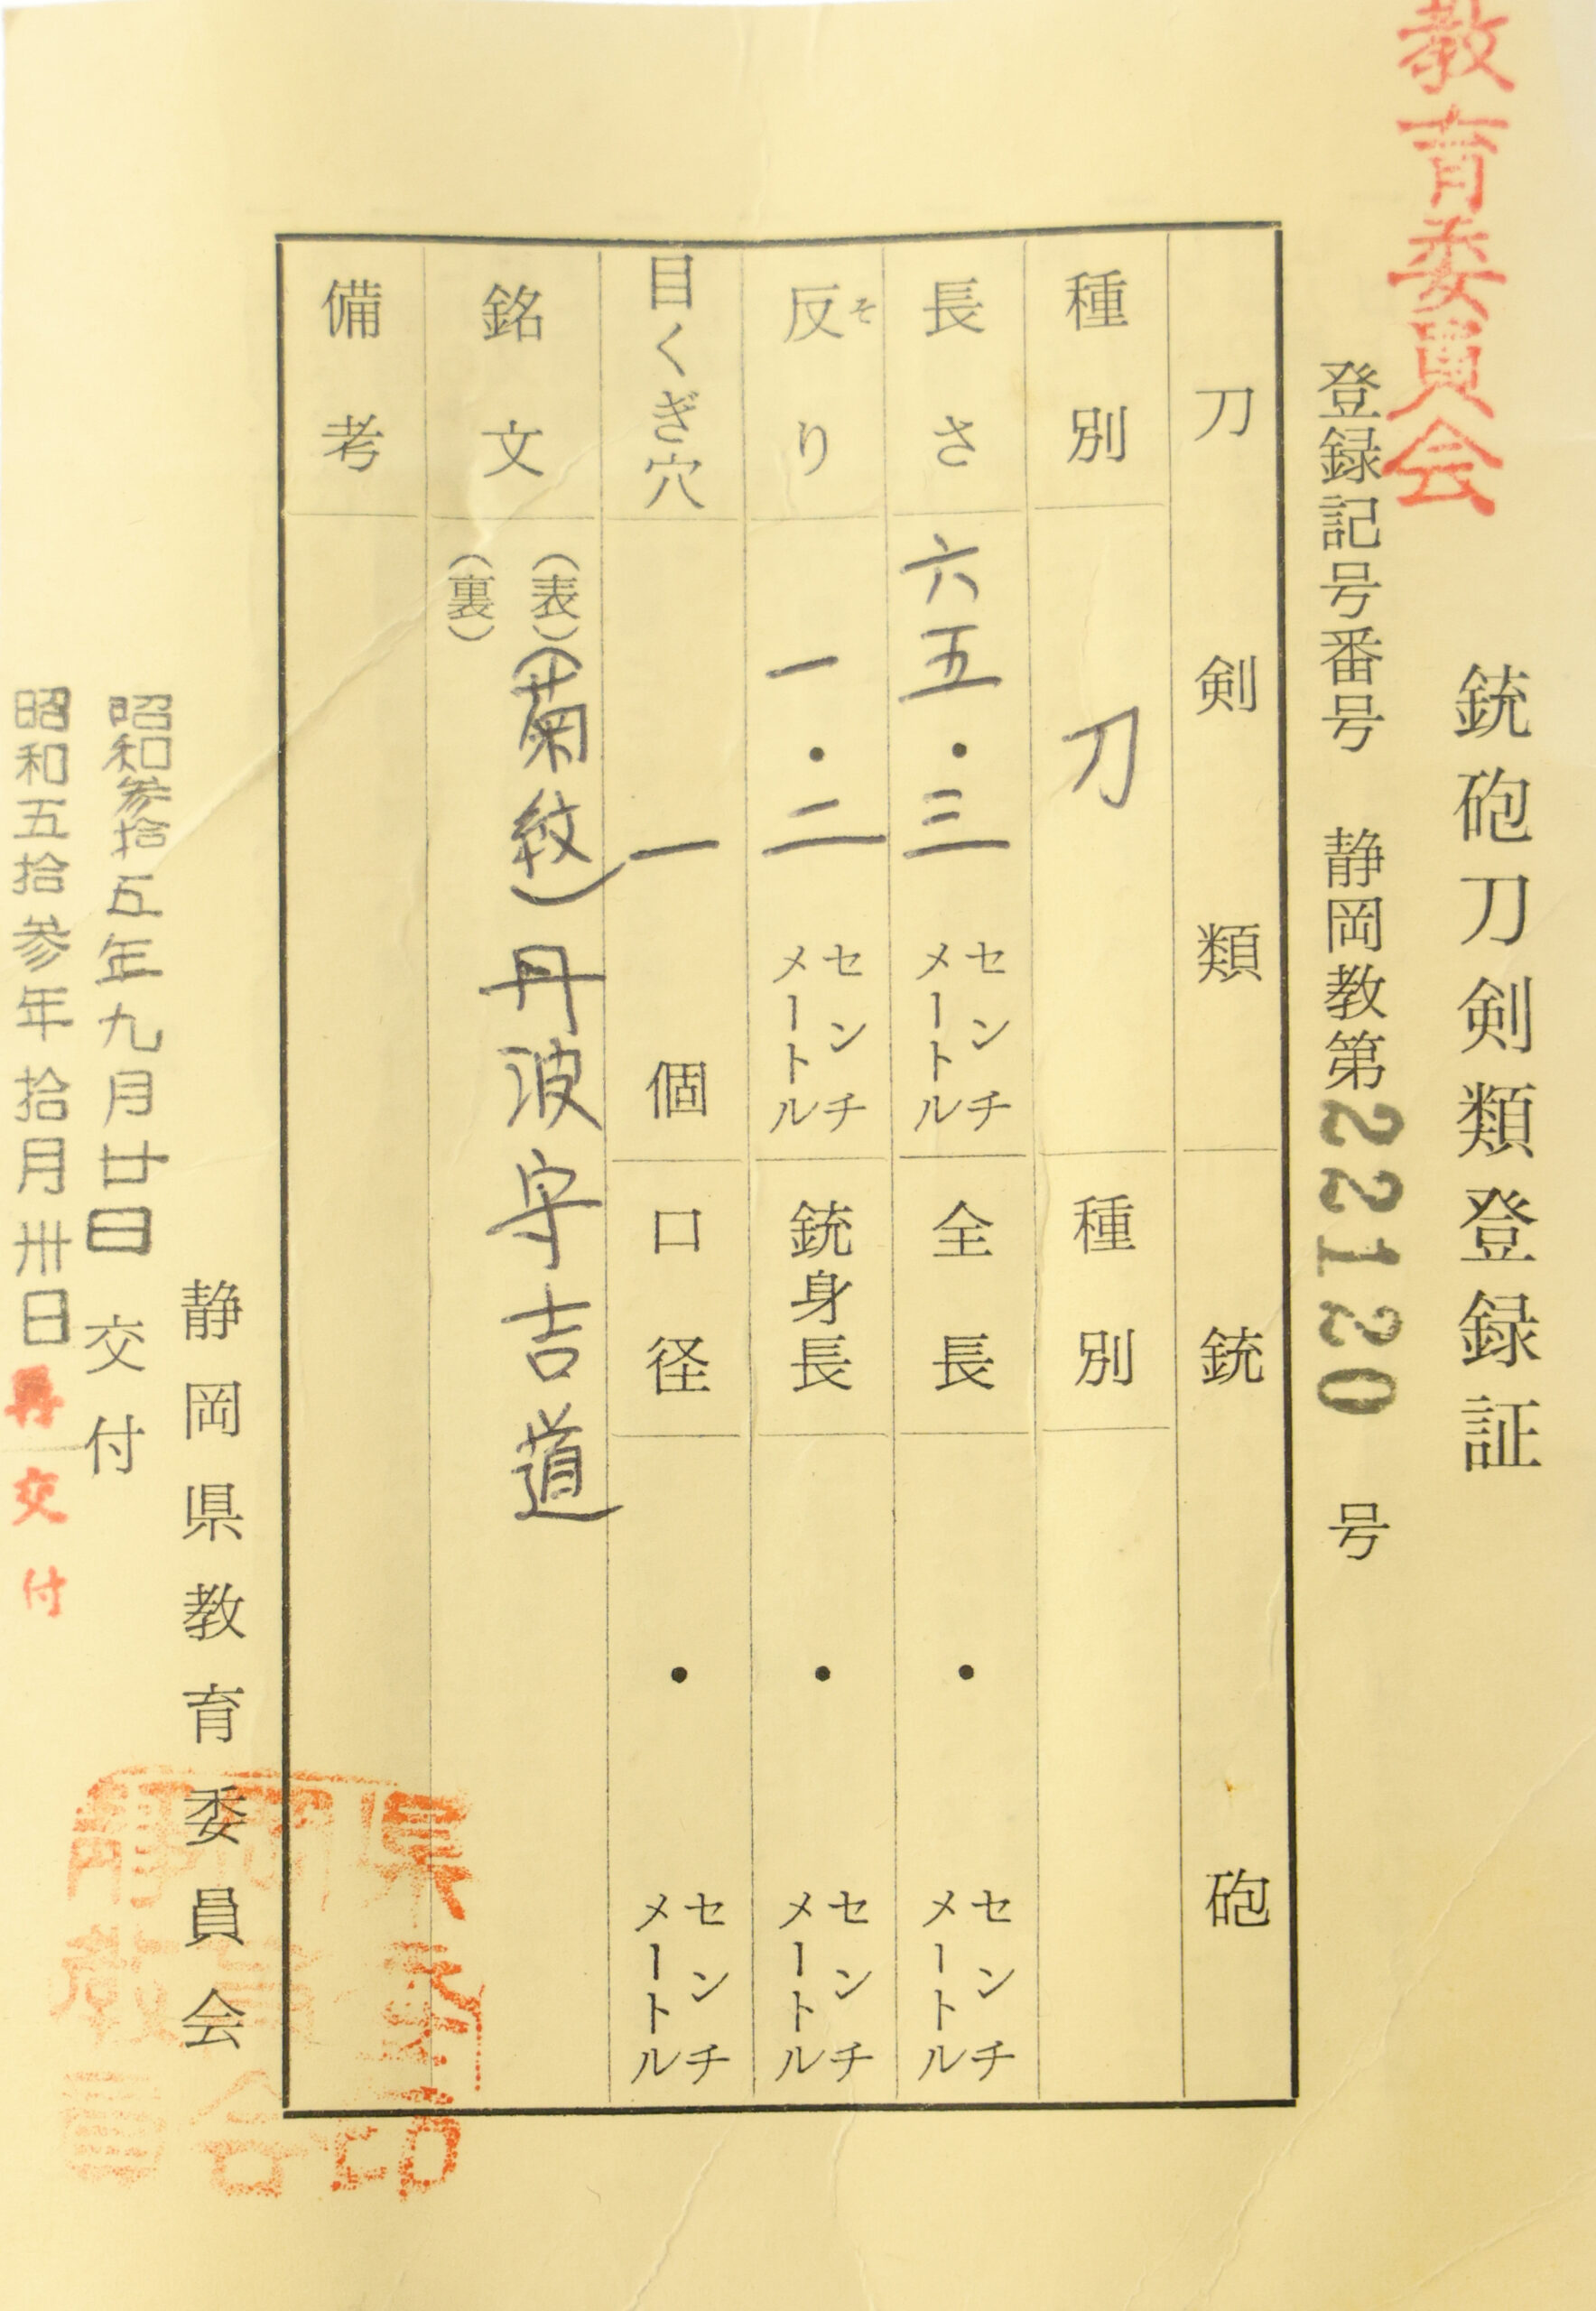 教育委員会
銃砲刀剣類登録証
登録記号番号 静岡教第22120号
刀剣類 銃砲
種別 刀 種別
長さ 六五・三 センチメートル 全長 ・ センチメートル
反り そ 一・二 センチメートル 銃身長 ・ センチメートル
目くぎ穴 一 個 口径 ・ センチメートル
銘文 (表)(菊紋)丹波守吉道
(裏)
備考
静岡県教育委員会
昭和参拾五年九月廿日 交付
昭和五拾参年拾月卅日 再交付
静岡県教育委員会印